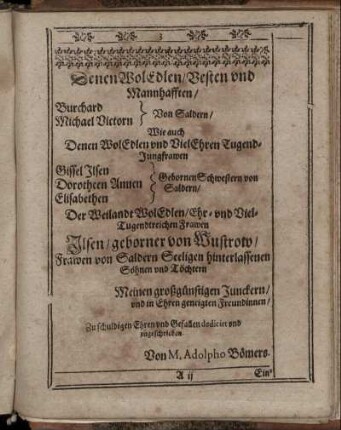 3
Denen WolEdlen/ Vesten vnd
Mannhafften/
Burchard
Michael Victorn } Von Saldern/
Wie auch
Denen WolEdlen vnd VielEhren Tugend-
Jungfrawen
Gissel Ilsen
Dorotheen Annen } Gebornen Schwestern von
Elisabethen } Saldern/
Der Weilandt WolEdlen/ Ehr- vnd Viel-
Tugendtreichen Frawen
Ilsen/ geborner von Wustrow/
Frawen von Saldern Seeligen hinterlassenen
Söhnen vnd Töchtern
Meinen großgünstigen Junckern/
vnd in Ehren geneigten Freundinnen/
Zu schuldigen Ehren vnd Gefallen dediciret vnd
zugeschrieben
Von M. Adolpho Bömers.
A ij
Ein